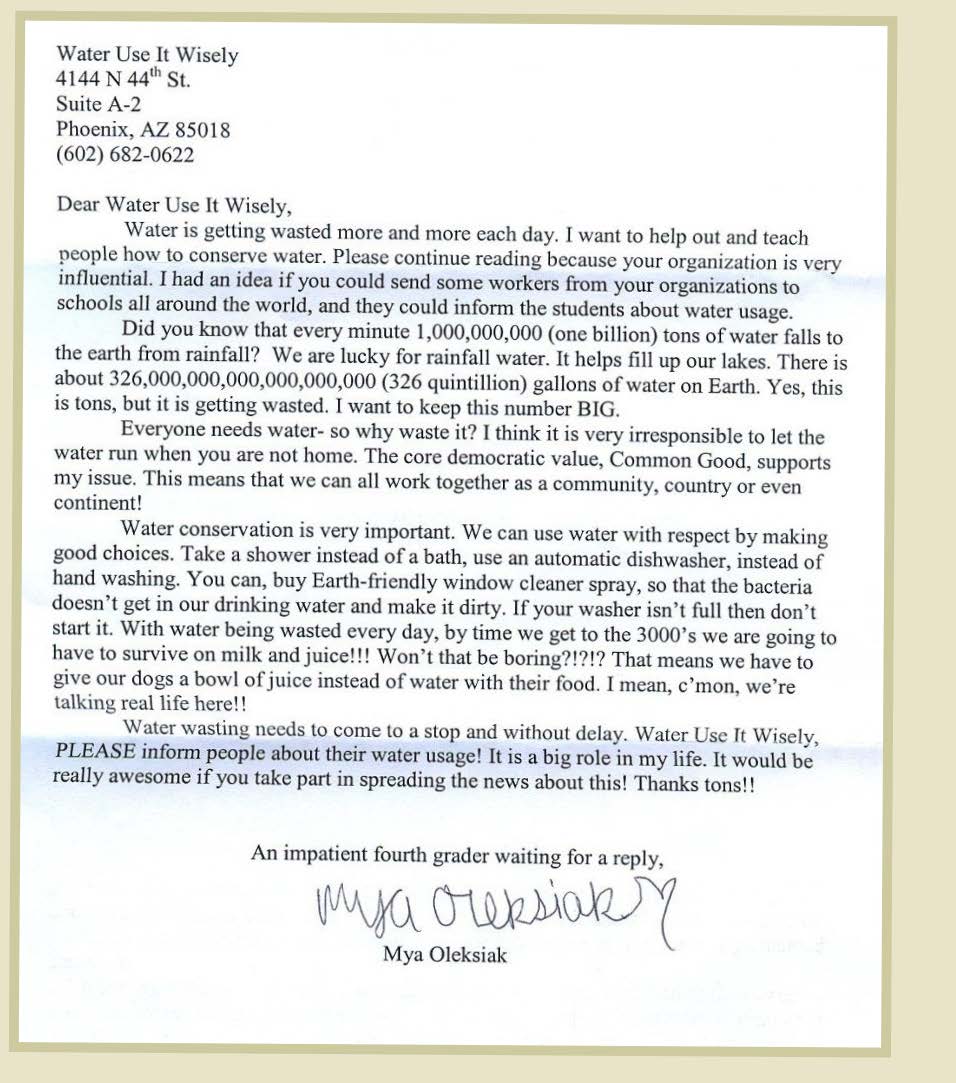 Water Use It Wisely
4144 N 44th St.
Suite A-2
Phoenix, AZ 85018
(602) 682-0622
Dear Water Use It Wisely,
Water is getting wasted more and more each day. I want to help out and teach
people how to conserve water. Please continue reading because your organization is very
influential. I had an idea if you could send some workers from your organizations to
schools all around the world, and they could inform the students about water usage.
Did you know that every minute 1,000,000,000 (one billion) tons of water falls to
the earth from rainfall? We are lucky for rainfall water. It helps fill up our lakes. There is
about 326,000,000,000,000,000,000 (326 quintillion) gallons of water on Earth. Yes, this
is tons, but it is getting wasted. I want to keep this number BIG.
Everyone needs water- so why waste it? I think it is very irresponsible to let the
water run when you are not home. The core democratic value, Common Good, supports
my issue. This means that we can all work together as a community, country or even
continent!
Water conservation is very important. We can use water with respect by making
good choices. Take a shower instead of a bath, use an automatic dishwasher, instead of
hand washing. You can, buy Earth-friendly window cleaner spray, so that the bacteria
doesn't get in our drinking water and make it dirty. If your washer isn't full then don't
start it. With water being wasted every day, by time we get to the 3000's we are going to
have to survive on milk and juice!!! Won't that be boring?!?!? That means we have to
give our dogs a bowl of juice instead of water with their food. I mean, c'mon, we're
talking real life here!!
Water wasting needs to come to a stop and without delay. Water Use It Wisely,
PLEASE inform people about their water usage! It is a big role in my life. It would be
really awesome if you take part in spreading the news about this! Thanks tons!!
An impatient fourth grader waiting for a reply,
Mya Oleksiak
Mya Oleksiak